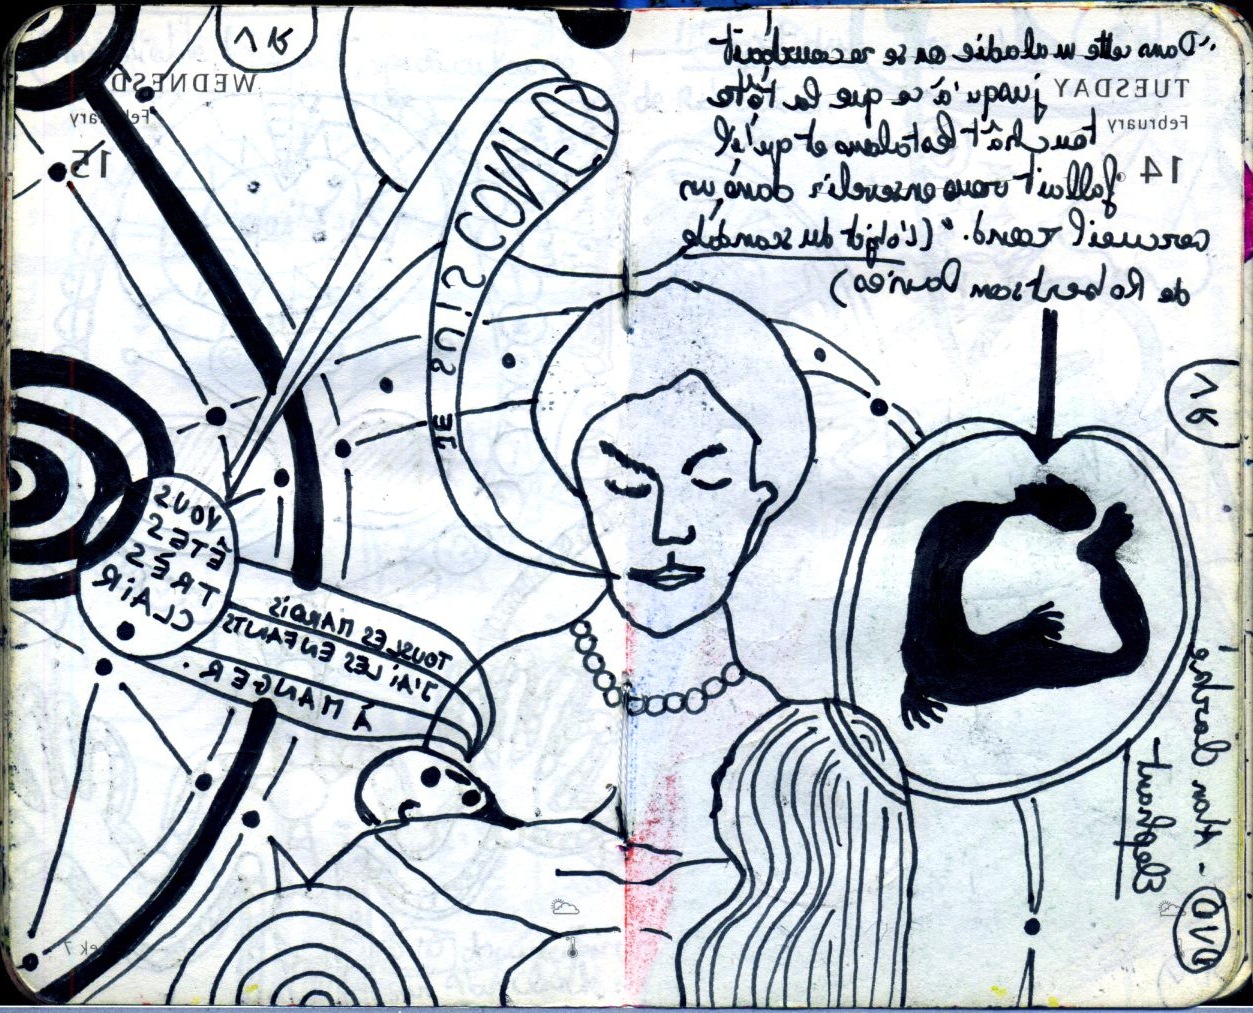 TUESDAY
February
14
"Dans cette maladie on se recourbait
jusqu'à ce que la tête
touchât les talons et qu'il
fallait vous ensevelir dans un
cercueil rond." (L'objet du scandale
de Robertson Davies)
DVD - Alan Clarke
Elephant
WEDNESD
February
15
JE SUIS CONFUS
VOUS
ÊTES
TRÉS
CLAIR
TOUS LES MARDIS
J'AI LES ENFANTS
À MANGER.
ek 7